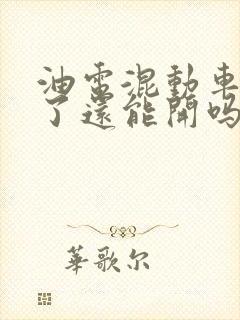 油電混動車
了還能開嗎
華歌尔